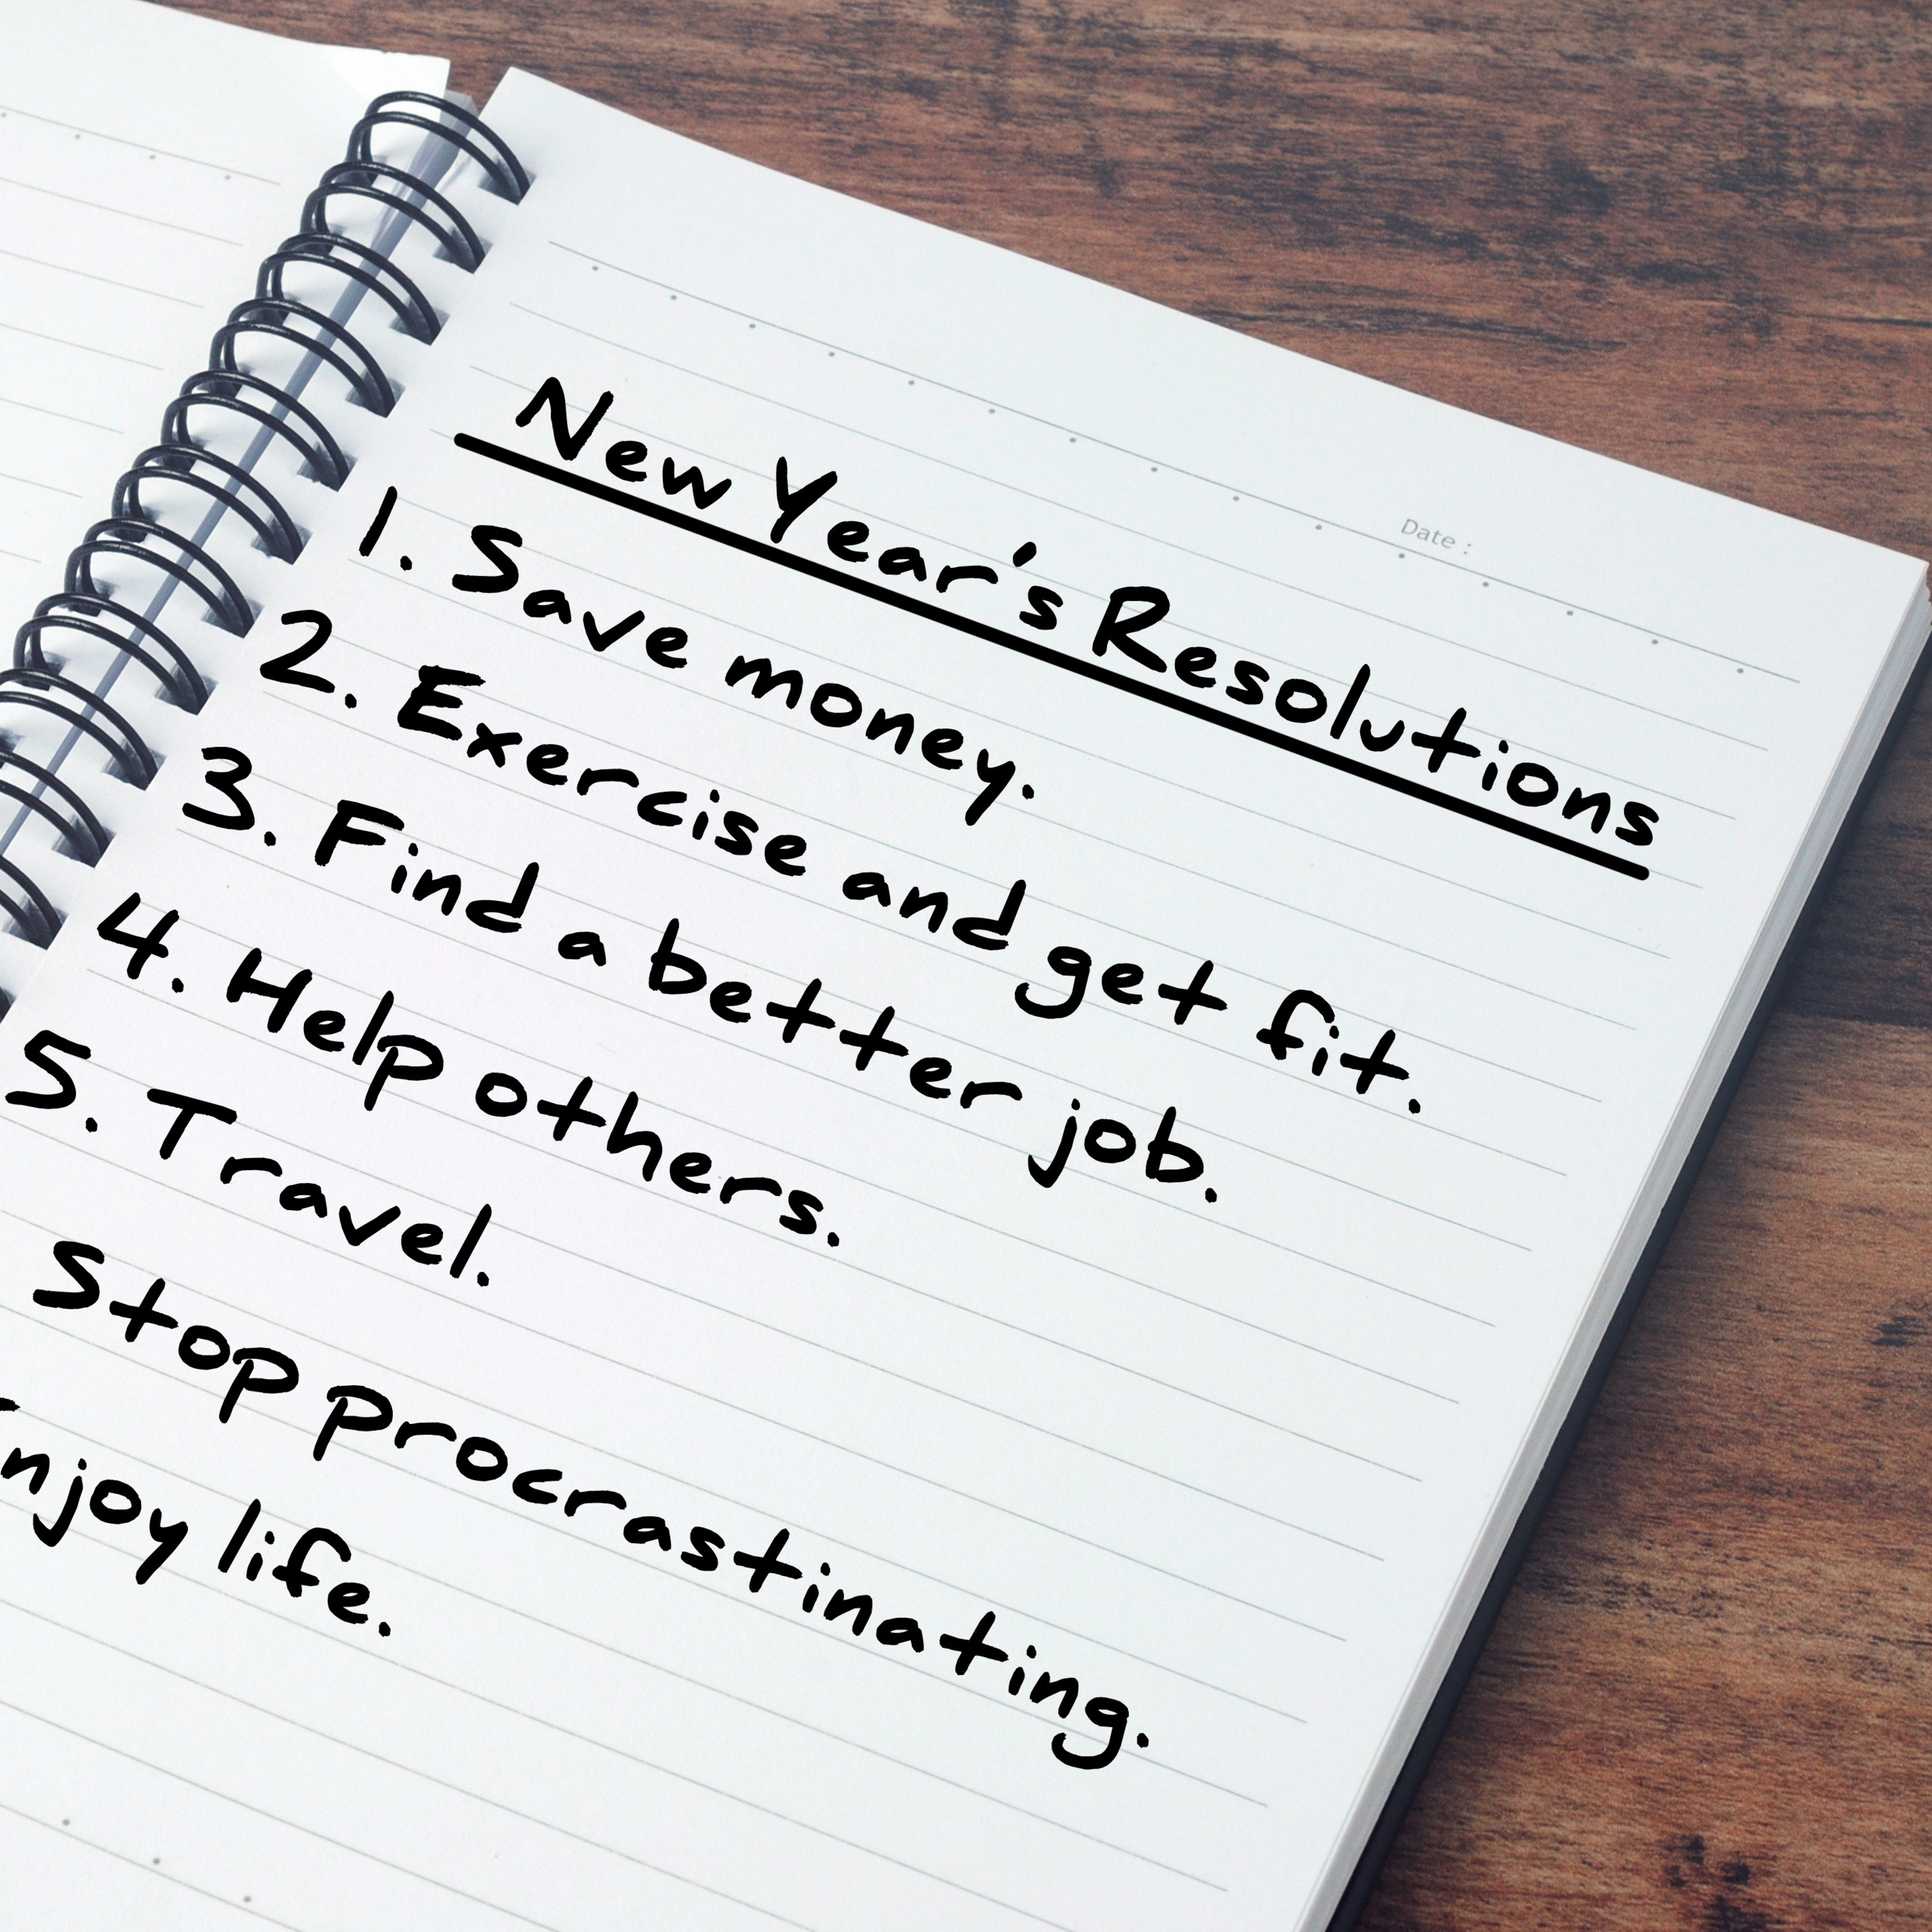 Date :
New Year's Resolutions
1. Save money.
2. Exercise and get fit.
3. Find a better job.
4. Help others.
5. Travel.
Stop procrastinating.
njoy life.